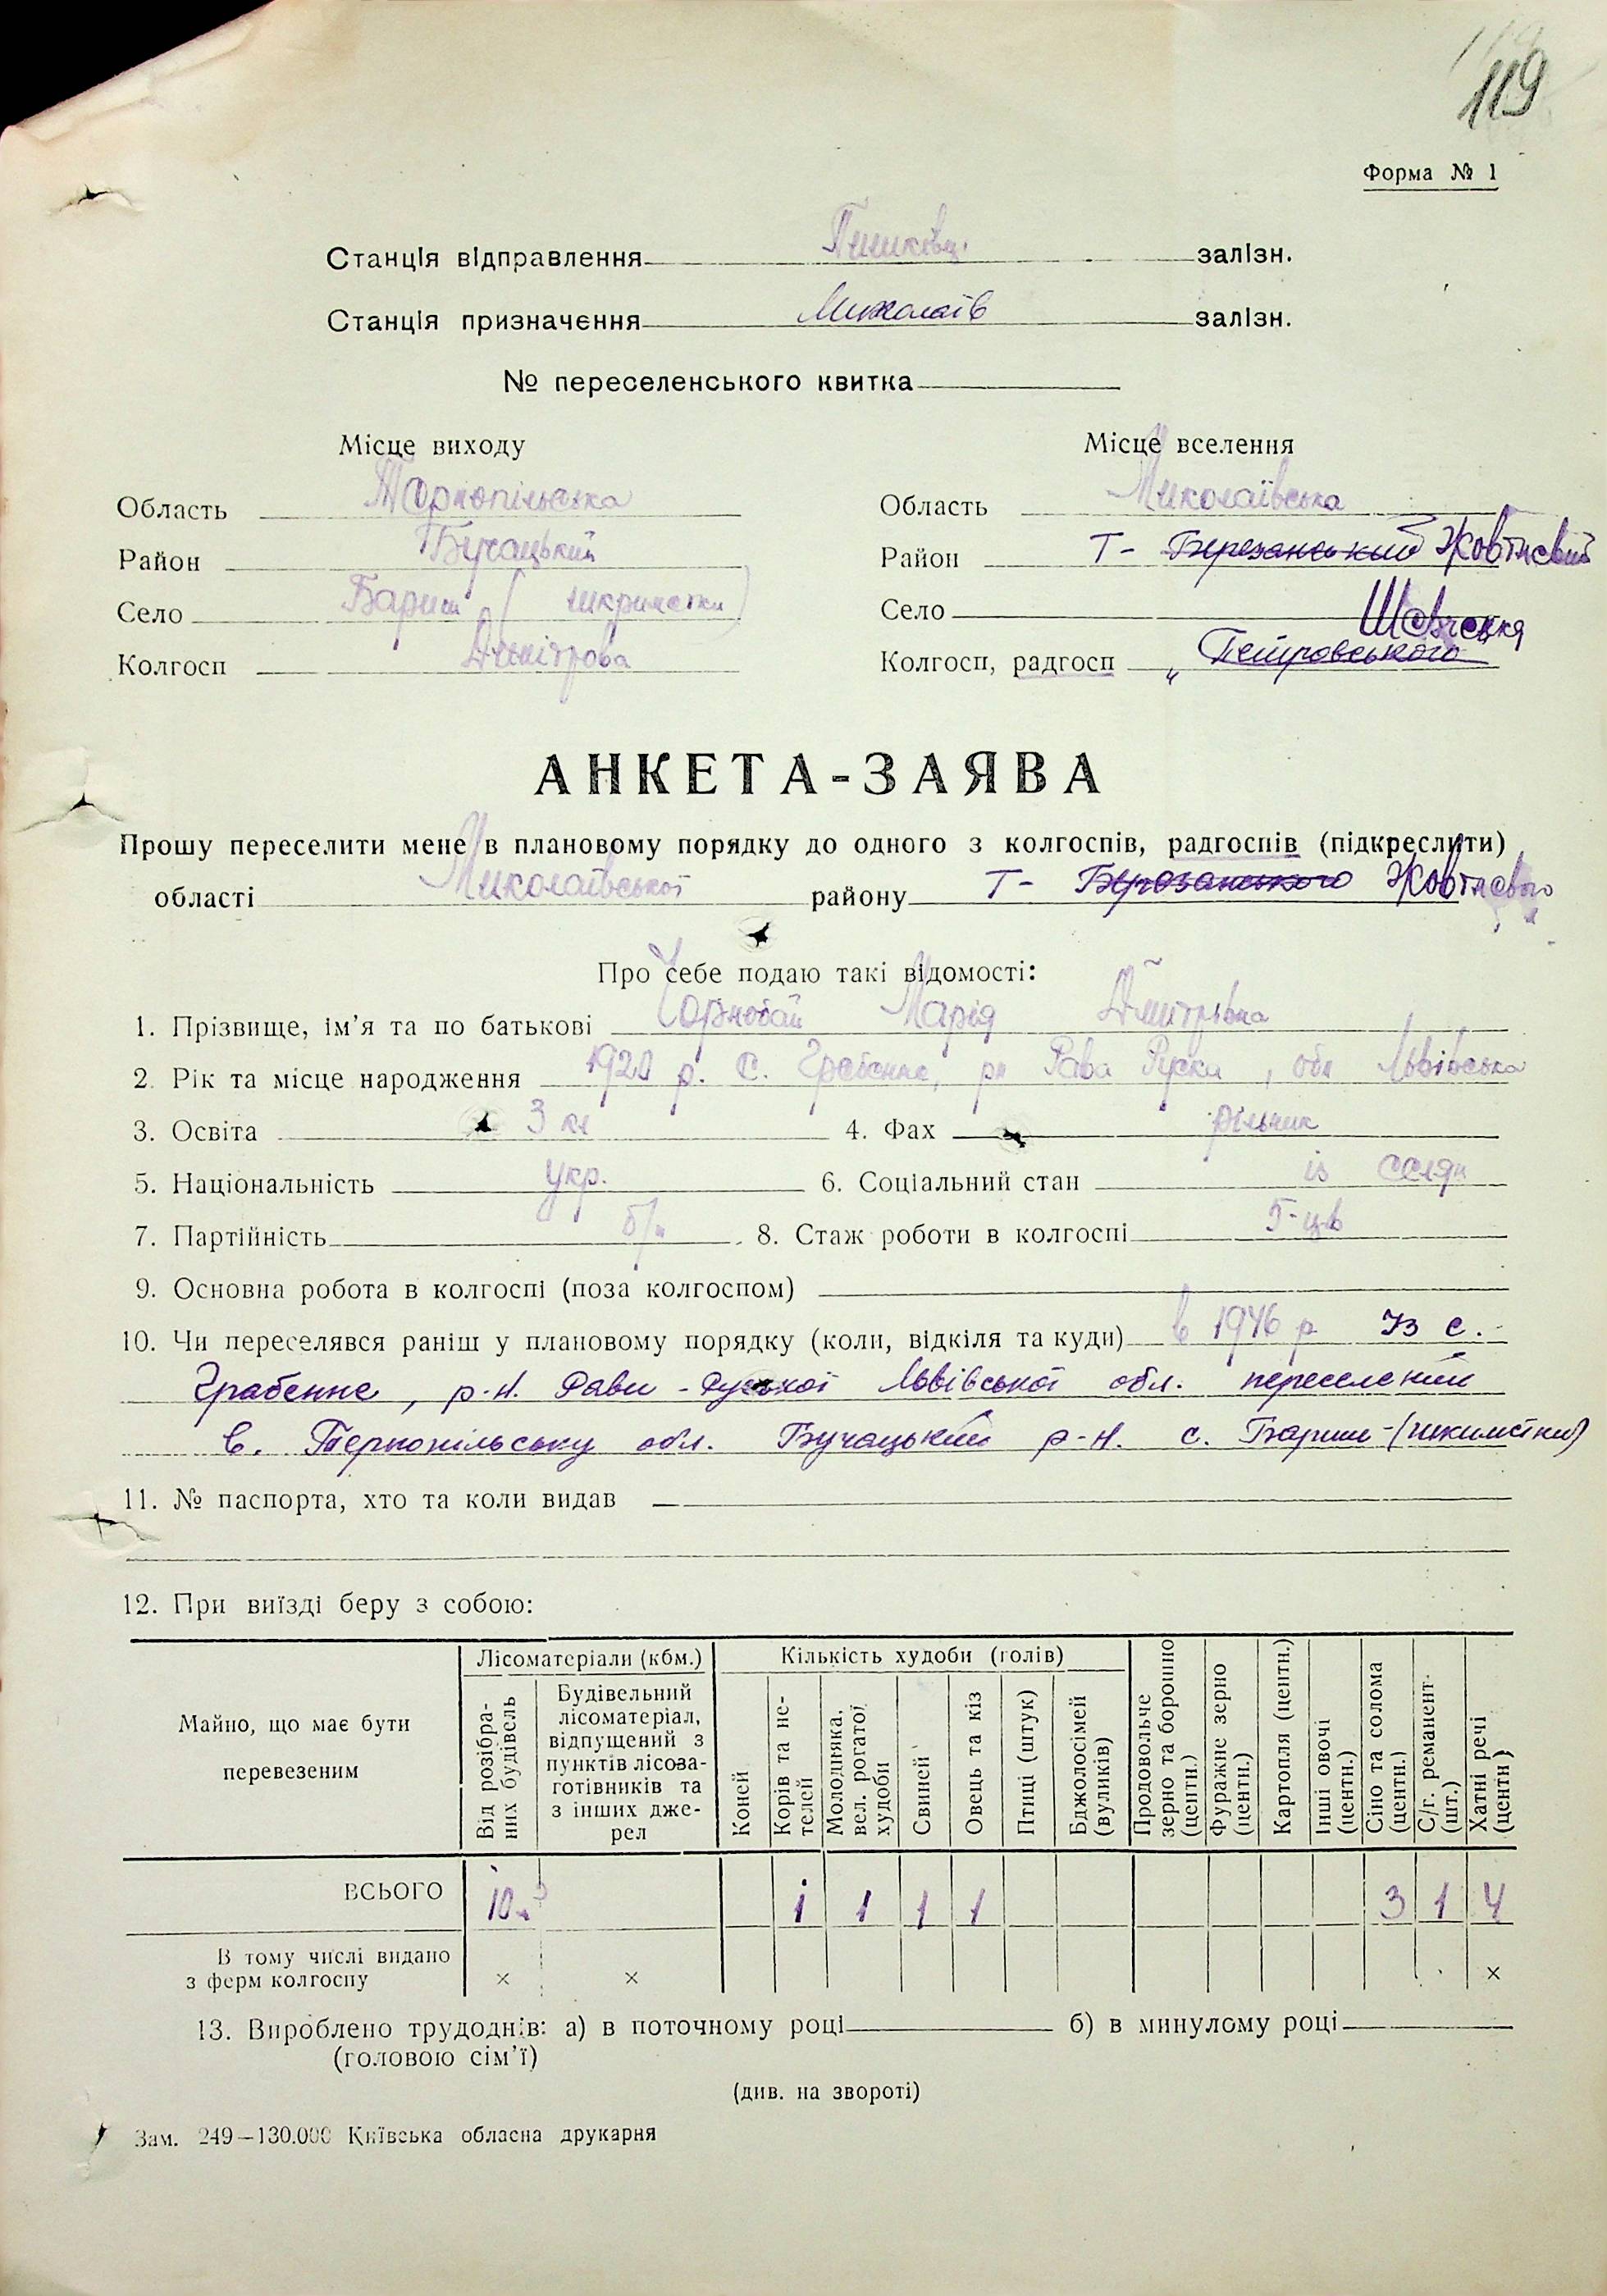 119
Форма № 1
Станція відправлення Пишківці залізн.
Станція призначення Миколаїв залізн.
№ переселенського квитка
Місце виходу Місце вселення
Область Тернопільська Область Миколаївська
Район Бучацький Район Т- Березанський Жовтневий
Село Бариш ( Село
Колгосп Димітрова Колгосп, радгосп „ Петровського Шевченка
АНКЕТА-ЗАЯВА
Прошу переселити мене в плановому порядку до одного з колгоспів, радгоспів (підкреслити)
області Миколаївської району Т- Березанського Жовтневого
Про себе подаю такі відомості:
1. Прізвище, ім’я та по батькові Чорнобай Марія Дмитрівна
2. Рік та місце народження 1920 р. с. Гребенне, рн Рава Руска, обл Львівська
3. Освіта 3 кл 4. Фах рільник
5. Національність укр. 6. Соціальний стан із селян
7. Партійність б/п 8. Стаж роботи в колгоспі
9. Основна робота в колгоспі (поза колгоспом)
10. Чи переселявся раніш у плановому порядку (коли, відкіля та куди) в 1946 р из с.
Грабенне, р-н. Рави-Руської Львівської обл. переселений
в. Тернопільську обл. Бучацький р-н. с. Бариш-
11. № паспорта, хто та коли видав
12. При виїзді беру з собою:
Майно, що має бути перевезеним
Лісоматеріали (кбм.)
Від розібраних будівель
Будівельний лісоматеріал, відпущений з пунктів лісозаготівників та з інших джерел
Кількість худоби (голів)
Коней
Корів та нетелей
Молодняка, вел. рогатої худоби
Свиней
Овець та кіз
Птиці (штук)
Бджолосімей (вуликів)
Продовольче зерно та борошно (центн.)
Фуражне зерно (центн.)
Картопля (центн.)
Інші овочі (центн.)
Сіно та солома (центн.)
С/г. реманент (шт.)
Хатні речі (центн)
ВСЬОГО 10м³ 1 1 1 1 3 1 4
В тому числі видано
з ферм колгоспу × × ×
13. Вироблено трудоднів: а) в поточному році б) в минулому році
(головою сім’ї)
(див. на звороті)
Зам. 249—130.000 Київська обласна друкарня